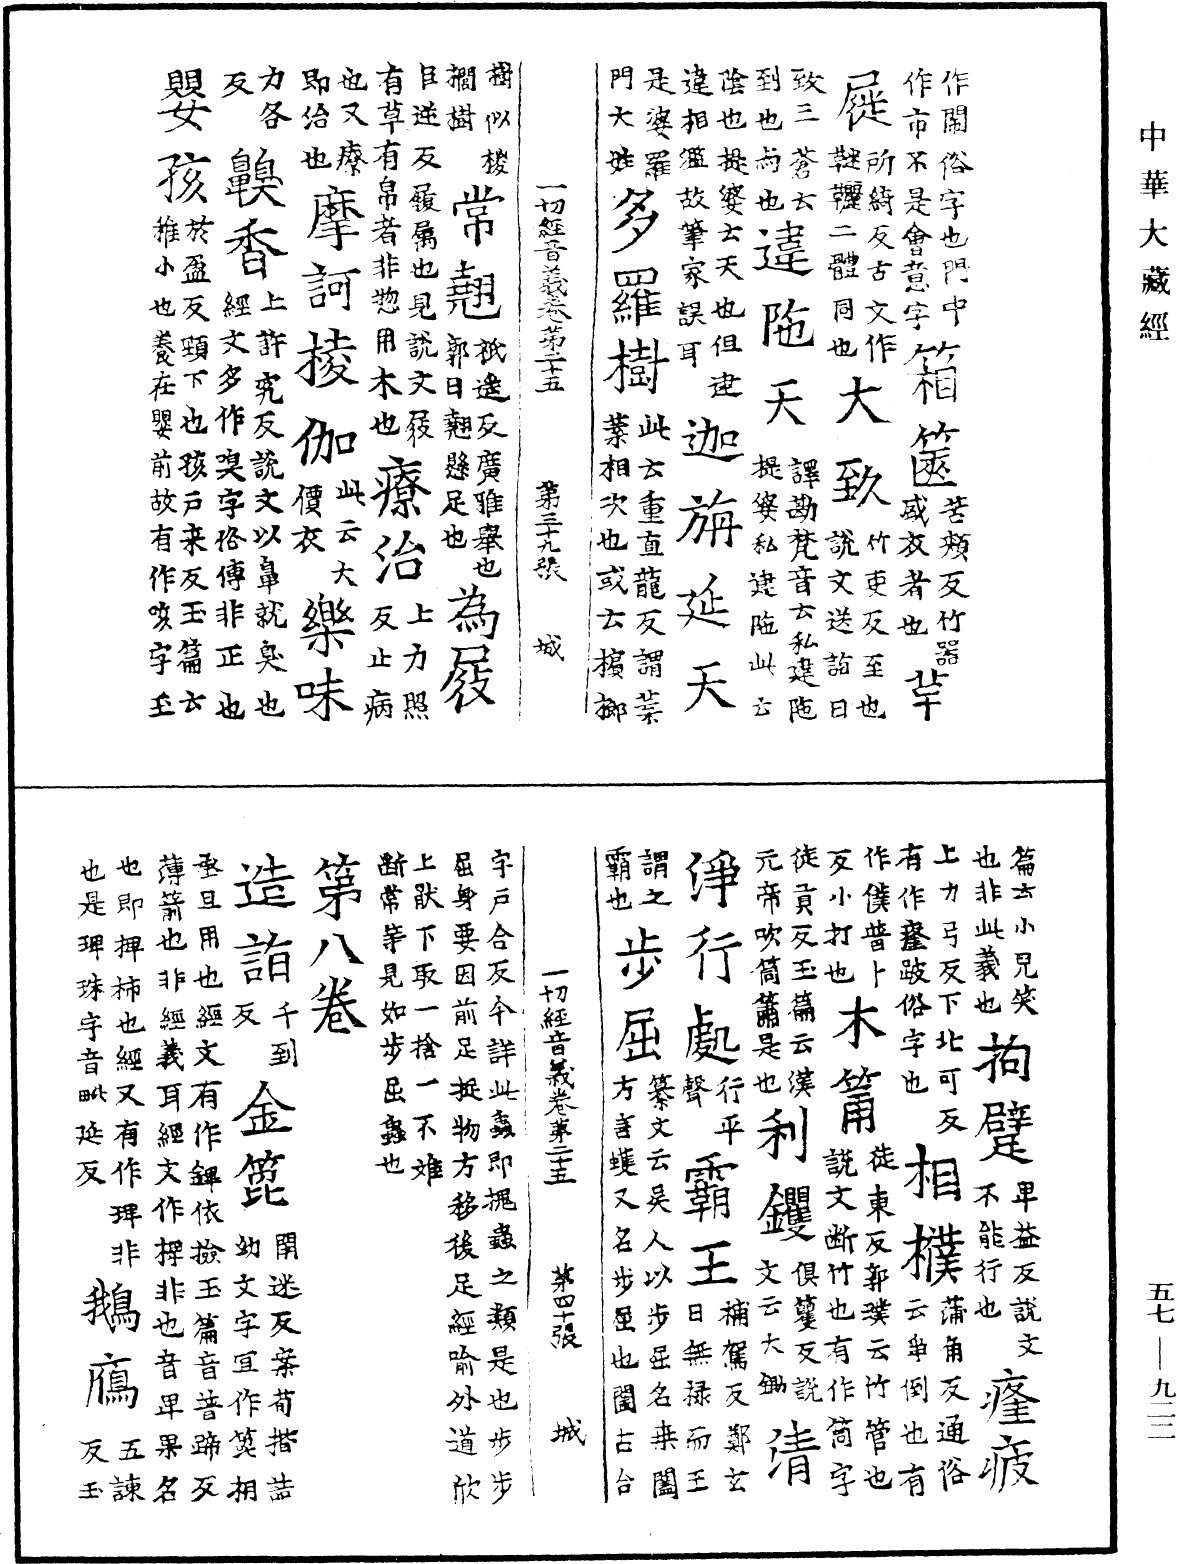 作閙俗字也門中
作市不是會意字
箱篋
苦頰反竹器
盛衣者也
屣
所綺反古文作
二體同也
大致
竹吏反至也
說文送詣曰
致三蒼云
到也尚也
違陁天
譯勘梵音云私違陁
提婆私建陁此云
陰也提婆云天也但建
違相濫故筆家誤耳
迦旃延天
是婆羅
門大姓
多羅樹
此云重直龍反謂葉
葉相次也或云檳榔
一切經音義卷第二十五 第三十九張 城
樹似椶
櫚樹
常翹
祇遥反廣雅舉也
郭曰翹懸足也
為屐
巨逆反履属也見說文屐
有草有帛者非惣用木也
療治
上力照
反止病
也又療
即治也
摩訶棱伽
此云大
價衣
樂味
力各
反
齅香
上許究反說文以鼻就臭也
經文多作嗅字俗傳非正也
嬰孩
於盈反頸下也孩戸来反玉篇云
稚小也養在嬰前故有作咳字玉
篇云小兒笑
也非此義也
拘躄
卑益反說文
不能行也
疲
上力弓反下北可反
有作跛俗字也
相撲
蒲角反通俗
云爭倒也有
作僕普卜
反小打也
木筩
徒東反郭璞云竹管也
說文断竹也有作筒字
徒貢反玉篇云漢
元帝吹筒簫是也
利钁
俱籰反說
文云大鋤
清
淨行處
行平
聲
霸王
補駕反鄭玄
曰無禄而王
謂之
霸也
步屈
纂文云吳人以步屈名桒闔
方言蠖又名步屈也闔古合
一切經音義卷第二十五 第四十張 城
字戸合反今詳此蟲即槐蟲之類是也步步
屈身要因前足捉物方移後足經喻外道欣
上猒下取一捨一不難
断常等見如步屈蟲也
第八卷
造詣
千到
反
金篦
開迷反案苟揩詰
幼文字宜作笓相
丞且用也經文有作錍依撿玉篇音普蹄反
薄箭也非經義耳經文作椑非也音卑果名
也即捭柿也經又有作琕非
也是琕珠字音毗延反
鵝鴈
五諫
反玉
中華大藏經
五七—九二二